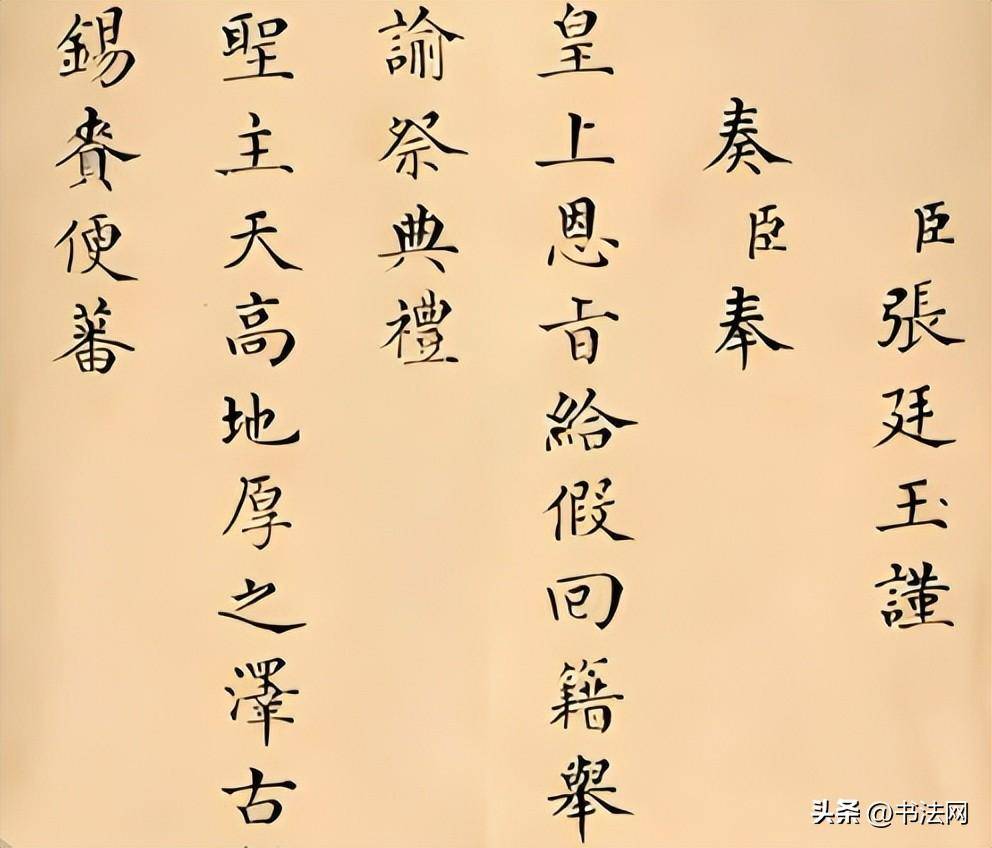 臣張廷玉謹
奏臣奉
皇上恩旨給假回籍舉
諭祭典禮
聖主天高地厚之澤古
錫賚便蕃
头条 @书法网